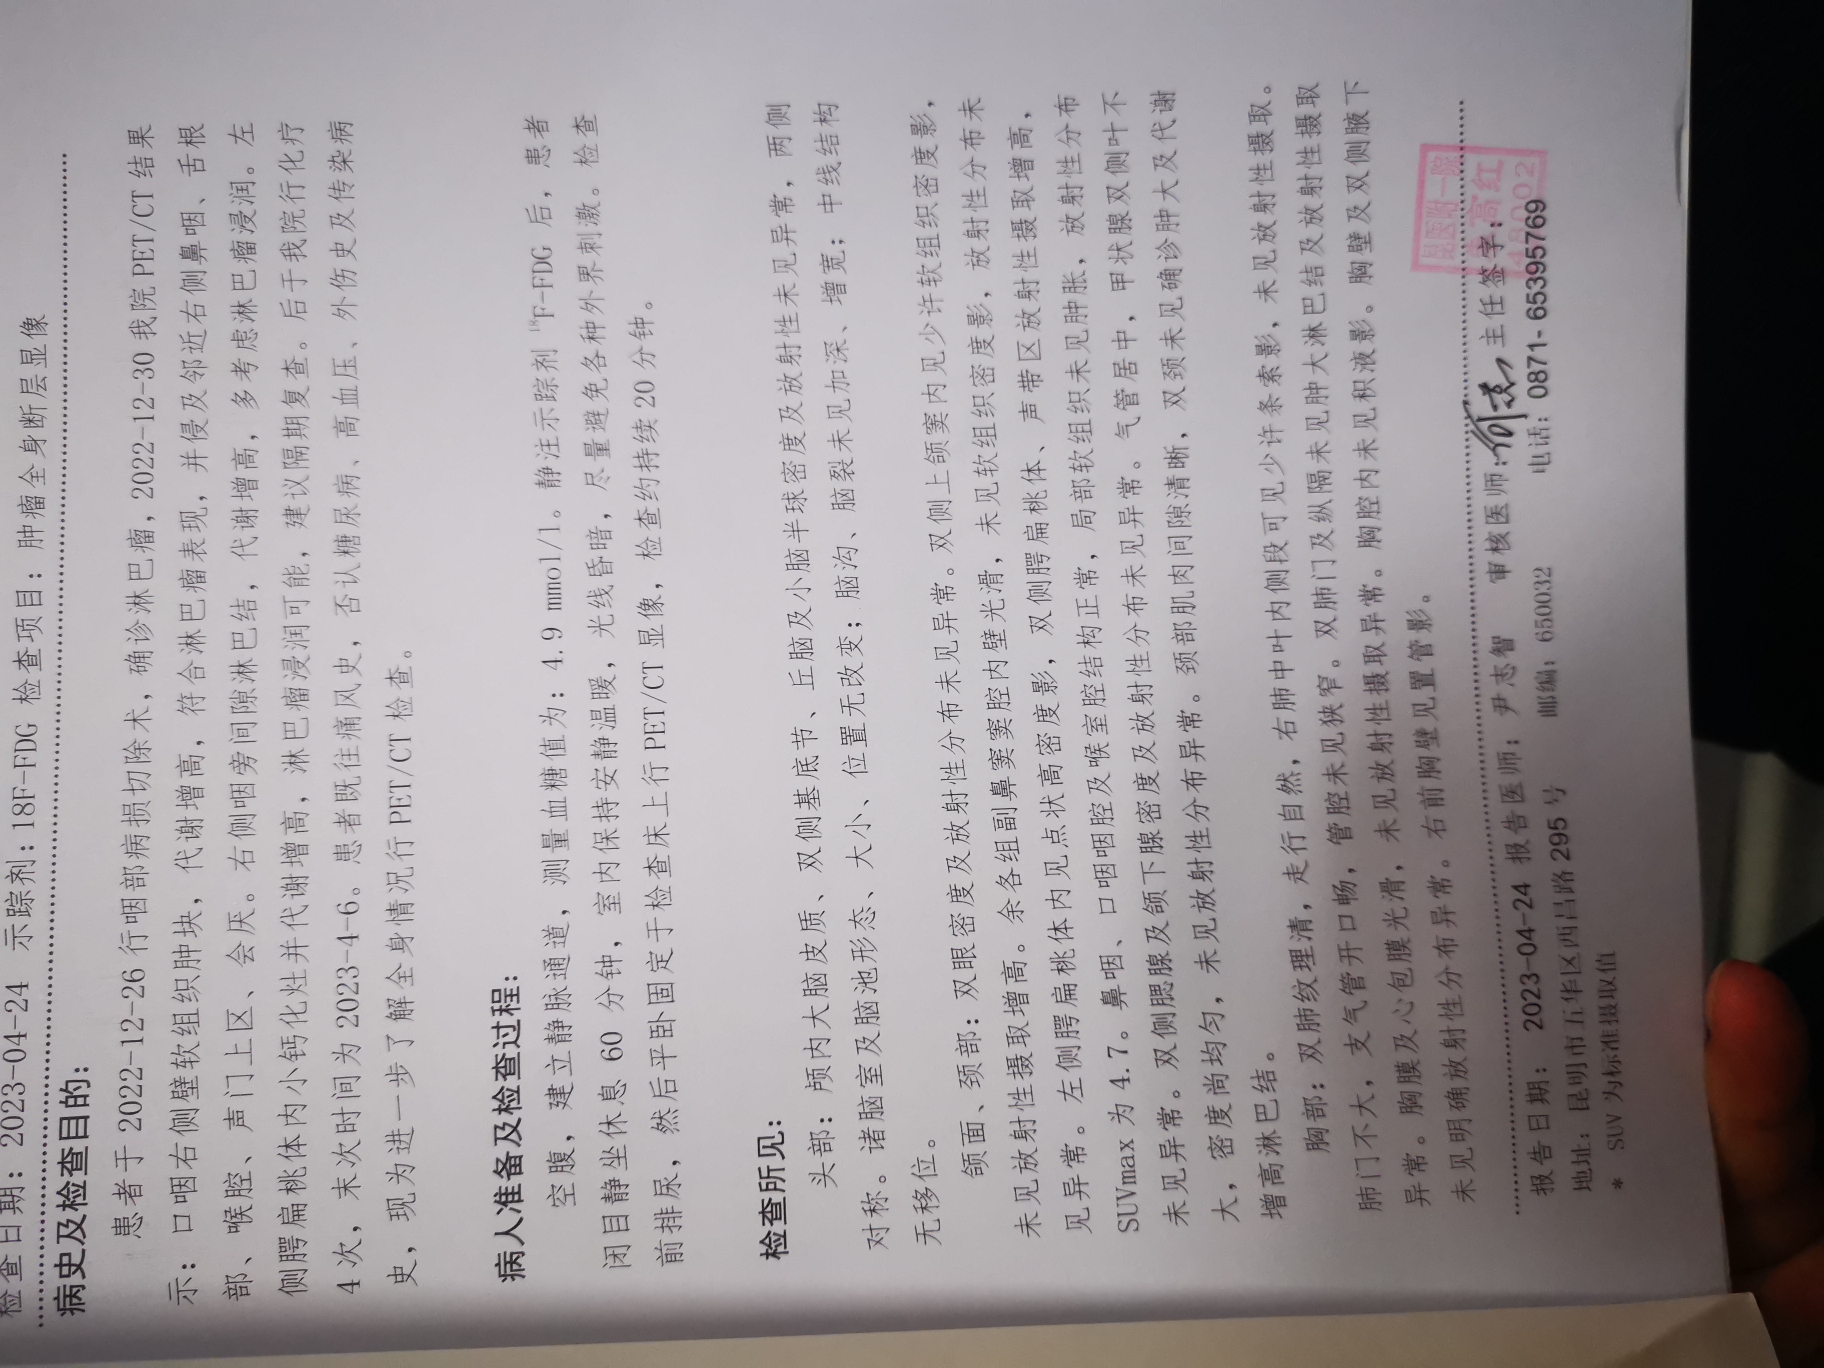 检查日期：2023-04-24 示踪剂：18F-FDG 检查项目：肿瘤全身断层显像
病史及检查目的：
患者于 2022-12-26 行咽部病损切除术，确诊淋巴瘤，2022-12-30 我院 PET/CT 结果
示：口咽右侧壁软组织肿块，代谢增高，符合淋巴瘤表现，并侵及邻近右侧鼻咽、舌根
部、喉腔、声门上区、会厌。右侧咽旁间隙淋巴结，代谢增高，多考虑淋巴瘤浸润。左
侧腭扁桃体内小钙化灶并代谢增高，淋巴瘤浸润可能，建议隔期复查。后于我院行化疗
4 次，末次时间为 2023-4-6。患者既往痛风史，否认糖尿病、高血压、外伤史及传染病
史，现为进一步了解全身情况行 PET/CT 检查。
病人准备及检查过程：
空腹，建立静脉通道，测量血糖值为：4.9 mmol/l。静注示踪剂 ¹⁸F-FDG 后，患者
闭目静坐休息 60 分钟，室内保持安静温暖，光线昏暗，尽量避免各种外界刺激。检查
前排尿，然后平卧固定于检查床上行 PET/CT 显像，检查约持续 20 分钟。
检查所见：
头部：颅内大脑皮质、双侧基底节、丘脑及小脑半球密度及放射性未见异常，两侧
对称。诸脑室及脑池形态、大小、位置无改变；脑沟、脑裂未见加深、增宽；中线结构
无移位。
颌面、颈部：双眼密度及放射性分布未见异常。双侧上颌窦内见少许软组织密度影，
未见放射性摄取增高。余各组副鼻窦窦腔内壁光滑，未见软组织密度影，放射性分布未
见异常。左侧腭扁桃体内见点状高密度影，双侧腭扁桃体、声带区放射性摄取增高，
SUVmax 为 4.7。鼻咽、口咽咽腔及喉室腔结构正常，局部软组织未见肿胀，放射性分布
未见异常。双侧腮腺及颌下腺密度及放射性分布未见异常。气管居中，甲状腺双侧叶不
大，密度尚均匀，未见放射性分布异常。颈部肌肉间隙清晰，双颈未见确诊肿大及代谢
增高淋巴结。
胸部：双肺纹理清，走行自然，右肺中叶内侧段可见少许条索影，未见放射性摄取。
肺门不大，支气管开口畅，管腔未见狭窄。双肺门及纵隔未见肿大淋巴结及放射性摄取
异常。胸膜及心包膜光滑，未见放射性摄取异常。胸腔内未见积液影。胸壁及双侧腋下
未见明确放射性分布异常。右前胸壁见置管影。
报告日期：2023-04-24 报告医师：尹志智 审核医师： 主任签字：
昆医附一院
高红
48002
地址：昆明市五华区西昌路 295 号 邮编：650032 电话：0871-65395769
* SUV 为标准摄取值